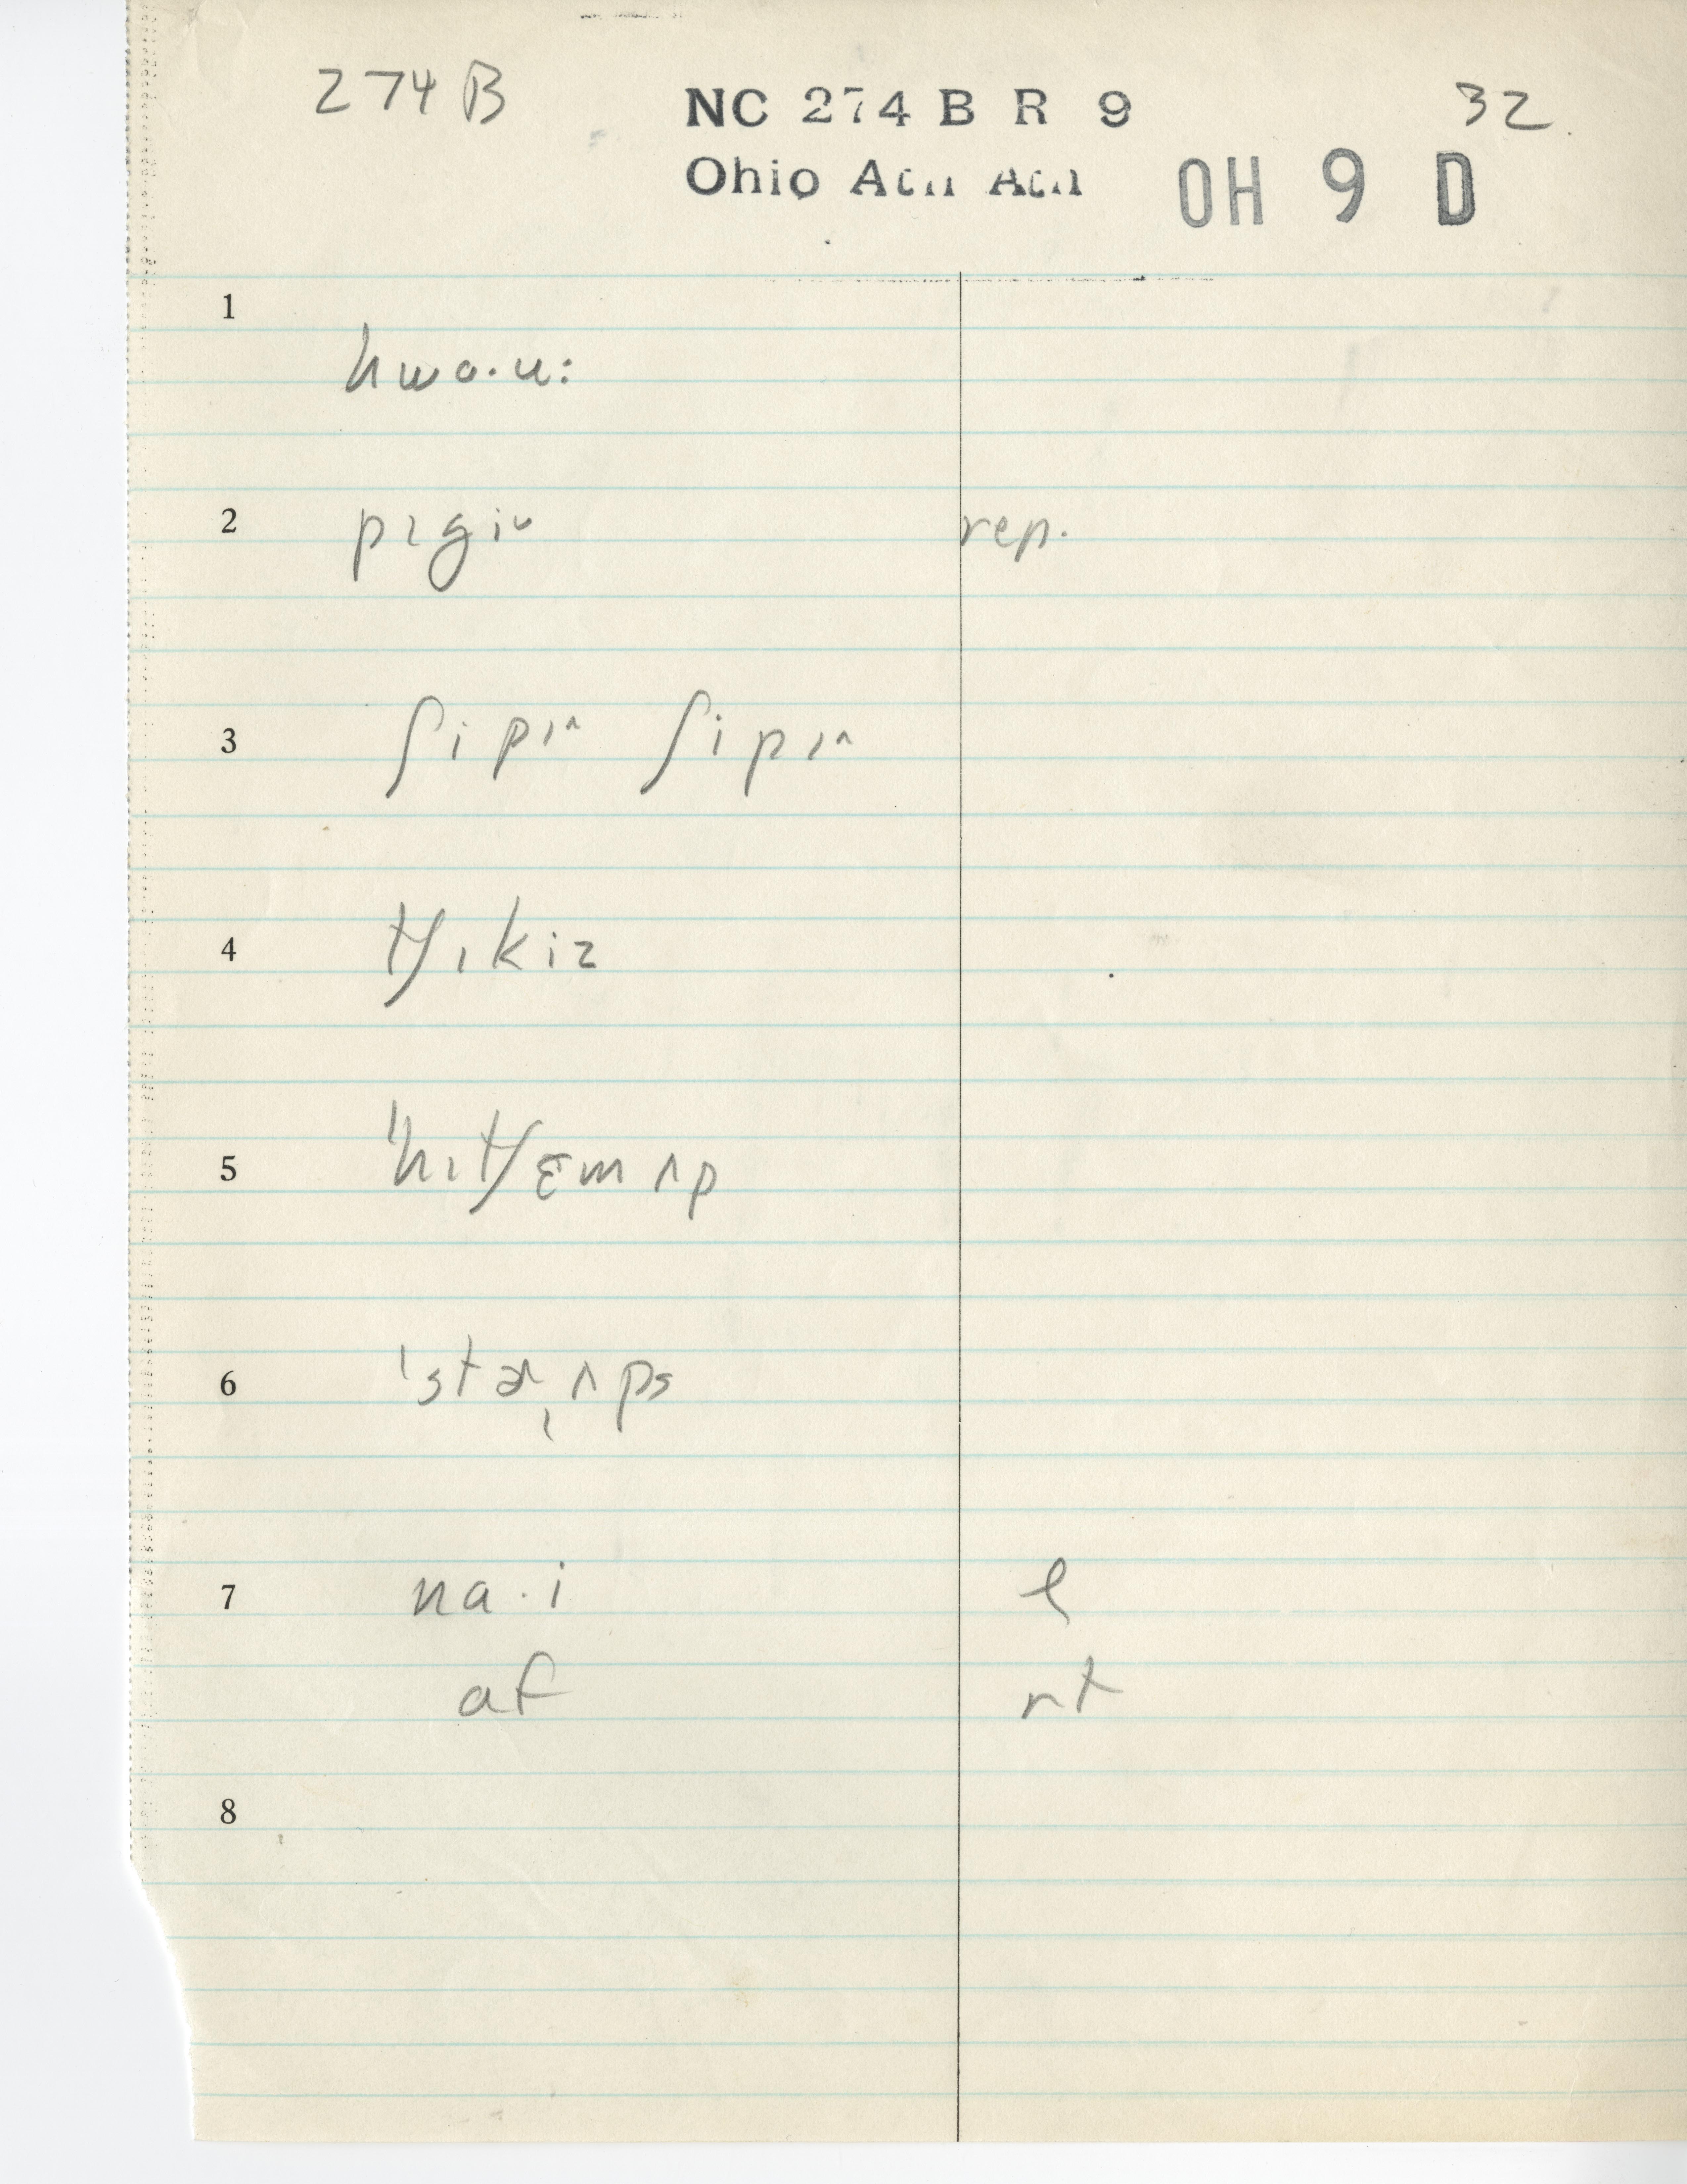 274B NC 274 B R 9 32
Ohio OH 9 D
1
hwo·u:
2 pɪgiᵕ rep.
3 ʃipɪ^ ʃipɪ^
4 tʃɪkiz
5 'hɪtʃɛm ʌp
6 'stɚˌʌps
7 na·i l
af rt
8